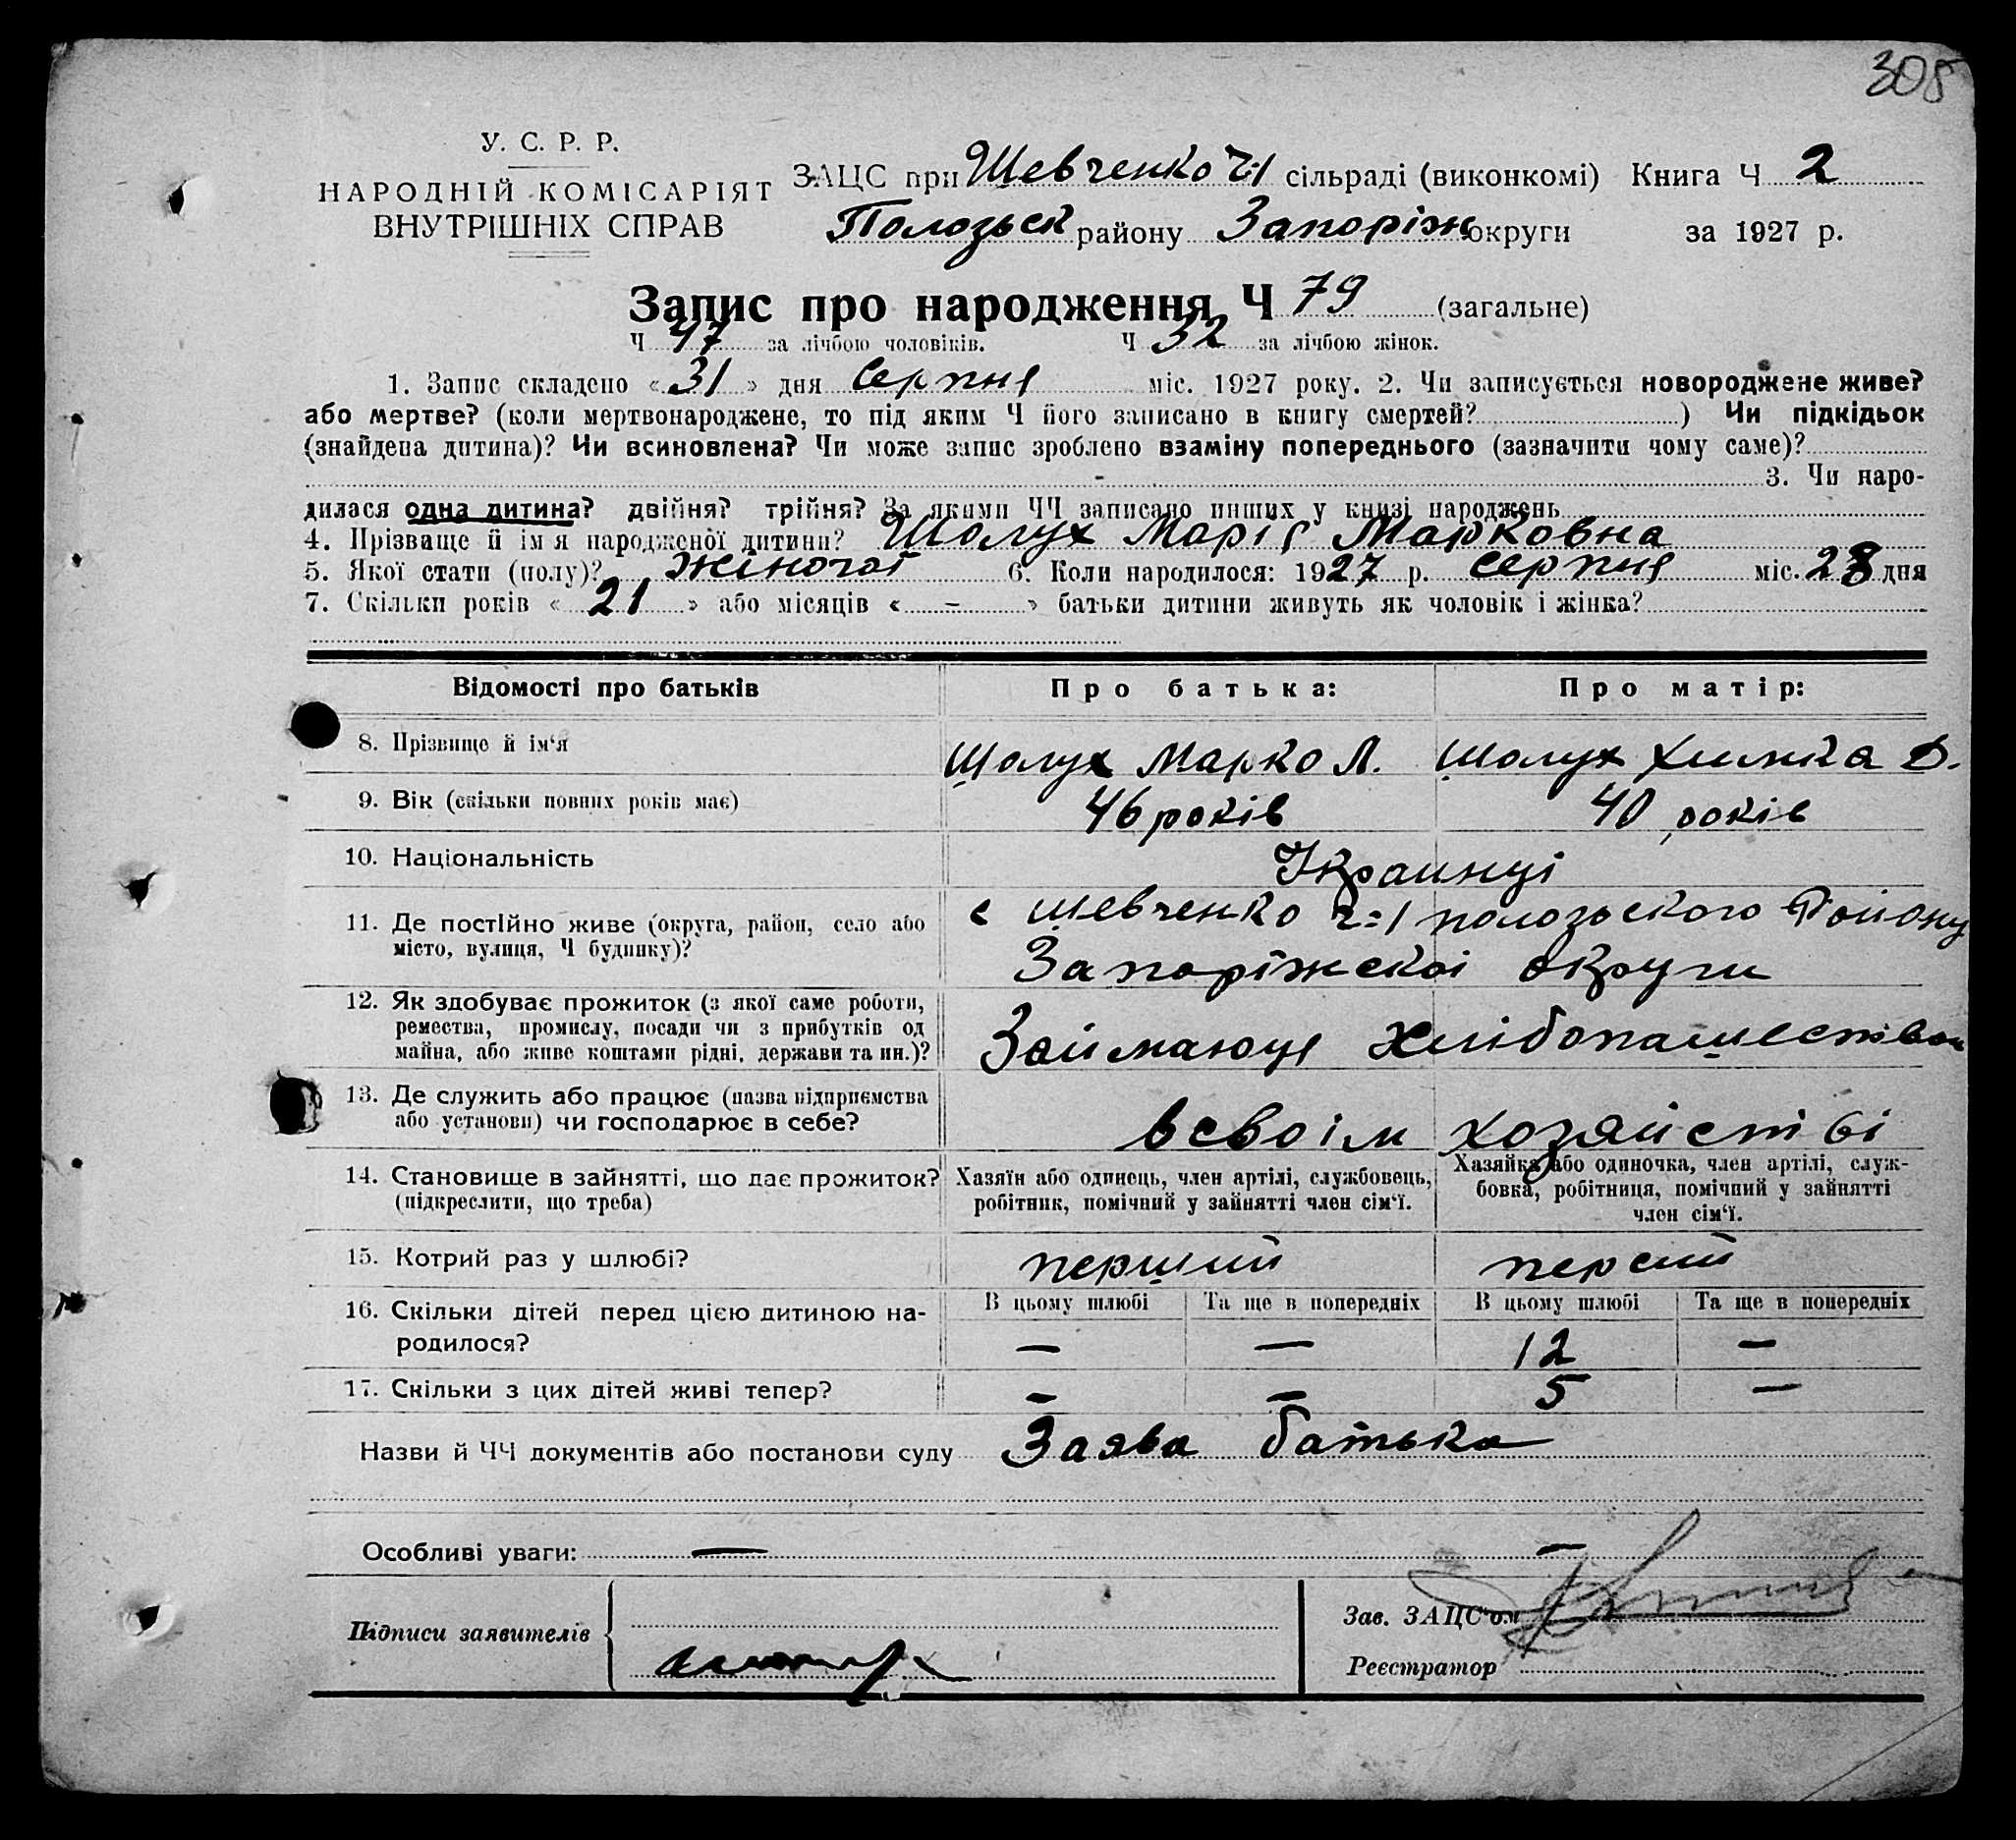 308
У. С. Р. Р.
НАРОДНІЙ КОМІСАРІЯТ
ВНУТРІШНІХ СПРАВ
ЗАЦС при Шевченко Ч-1 сільраді (виконкомі) Книга Ч 2
Полозьск району Запоріж округи за 1927 р.
Запис про народження Ч 79 (загальне)
Ч 47 за лічбою чоловіків. Ч 32 за лічбою жінок.
1. Запис складено «31» дня Серпня міс. 1927 року. 2. Чи записується новороджене живе?
або мертве? (коли мертвонароджене, то під яким Ч його записано в книгу смертей? ) Чи підкідьок
(знайдена дитина)? Чи всиновлена? Чи може запис зроблено взаміну попереднього (зазначити чому саме)?
- 3. Чи наро-
дилася одна дитина? двійня? трійня? За якими ЧЧ записано инших у книзі народжень
4. Прізвище й ім'я народженої дитини? Шолух Марія Марковна
5. Якої стати (полу)? Жіночої 6. Коли народилося: 1927 р. серпня міс. 28 дня
7. Скільки років «21» або місяців «-» батьки дитини живуть як чоловік і жінка?
Відомості про батьків Про батька: Про матір:
8. Прізвище й ім'я Шолух Марко Л. Шолух Химка Д.
9. Вік (скільки повних років має) 46 років 40 років
10. Національність Украинці
11. Де постійно живе (округа, район, село або с Шевченко ч=1 полозьского Району
місто, вулиця, Ч будинку)? Запоріжскоі округи
12. Як здобуває прожиток (з якої саме роботи,
ремества, промислу, посади чи з прибутків од
майна, або живе коштами рідні, держави та ин.)? Займаюця Хлібопашеством
13. Де служить або працює (назва підприємства
або установи) чи господарює в себе? всвоім хозяйстві
14. Становище в зайнятті, що дає прожиток? Хазяїн або одинець, член артілі, службовець, Хазяйка або одиночка, член артілі, служ-
(підкреслити, що треба) робітник, помічний у зайнятті член сім'ї. бовка, робітниця, помічний у зайнятті
член сім'ї.
15. Котрий раз у шлюбі? перший персий
16. Скільки дітей перед цією дитиною на- В цьому шлюбі Та ще в попередніх В цьому шлюбі Та ще в попередніх
родилося? — — 12 —
17. Скільки з цих дітей живі тепер? — — 5 —
Назви й ЧЧ документів або постанови суду Заява батька
Особливі уваги: — —
Підписи заявителів
Зав. ЗАЦС'ом
Реєстратор